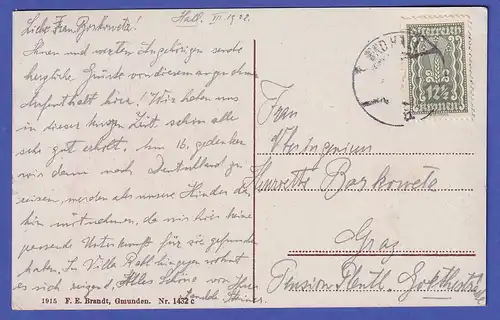 Liebe Frau Borkowetz! Hall. III. 1922.
Ihnen und werten Angehörigen sende
herzliche Grüße von diesem angenehmen
Aufenthalt hier. Wir haben uns
in dieser kurzen Zeit schon alle
sehr gut erholt. Am 16. gedenken
wir dann nach Deutschland zu
reisen, werden als unsere Kinder da-
hin mitnehmen, da wir hier keine
passende Unterkunft für sie gefunden
haben. In Villa Rabl hingegen wohnt
es sich reizend. Alles Schöne von Ihrer
1915 F. E. Brandt, Gmunden. Nr. 1432 c
BAD HALL
Österreich
12½
Kronen
Frau
Henriette Borkowetz
Graz
Pension Goethestraße